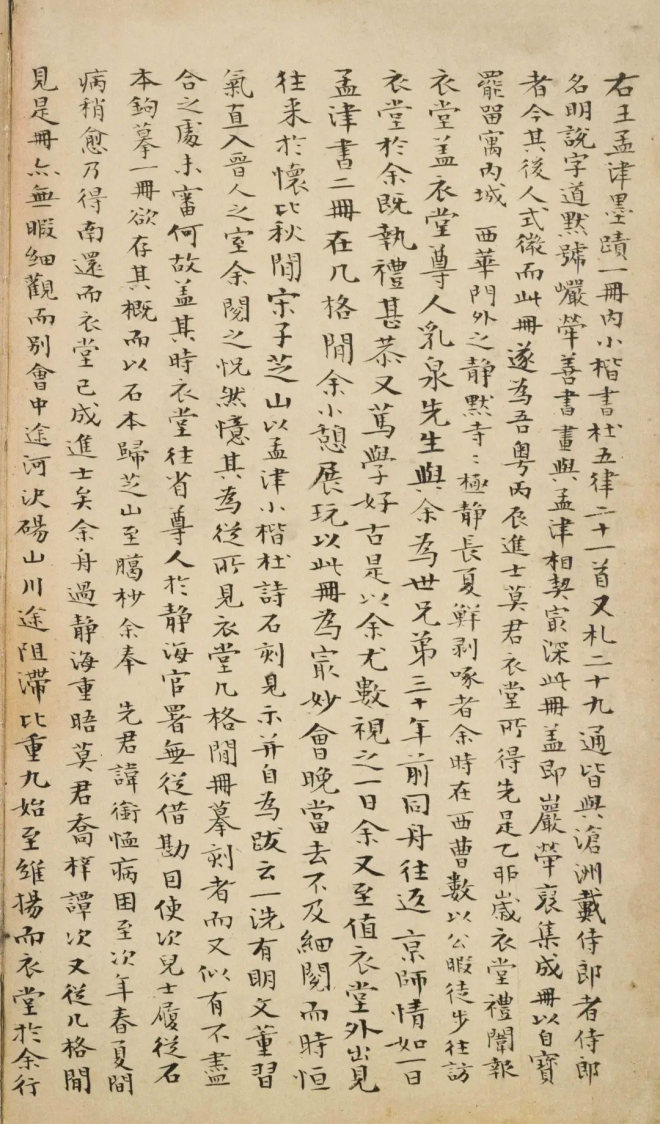 右王孟津墨蹟一冊內小楷書杜五律二十一首又札二十九通皆與滄洲戴侍郎者侍郎
名明說字道黙號巖犖善書畫與孟津相契寂深此冊盖即巖犖裒集成冊以自寶
者今其後人式微而此冊遂為吾粵丙辰進士莫君衣堂所得先是乙卯歲衣堂禮闈報
罷留寓內城 西華門外之静黙寺〻極静長夏鮮剥啄者余時在西曹數以公暇徒步往訪
衣堂盖衣堂尊人乳泉先生與余為世兄弟三十年前同舟往返 京師情如一日
衣堂於余既執禮甚恭又篤學好古是以余尤數視之一日余又至值衣堂外出見
孟津書二冊在几格間余小憩展玩以此冊為寂妙會晚當去不及細閱而時恒
往来於懷比秋間宋子芝山以孟津小楷杜詩石刻見示并自為跋云一洗有明文董習
氣直入晉人之室余閱之怳然憶其為從所見衣堂几格間冊摹刻者而又似有不盡
合之處未審何故盖其時衣堂往省尊人於静海官署無從借勘因使次兒士履從石
本鉤摹一冊欲存其概而以石本歸芝山至臈杪余奉 先君諱銜恤病困至次年春夏間
病稍愈乃得南還而衣堂已成進士矣余舟過静海重晤莫君喬梓譚次又從几格間
見是冊亦無暇細觀而別會中途河決碭山川途阻滯比重九始至維揚而衣堂於余行